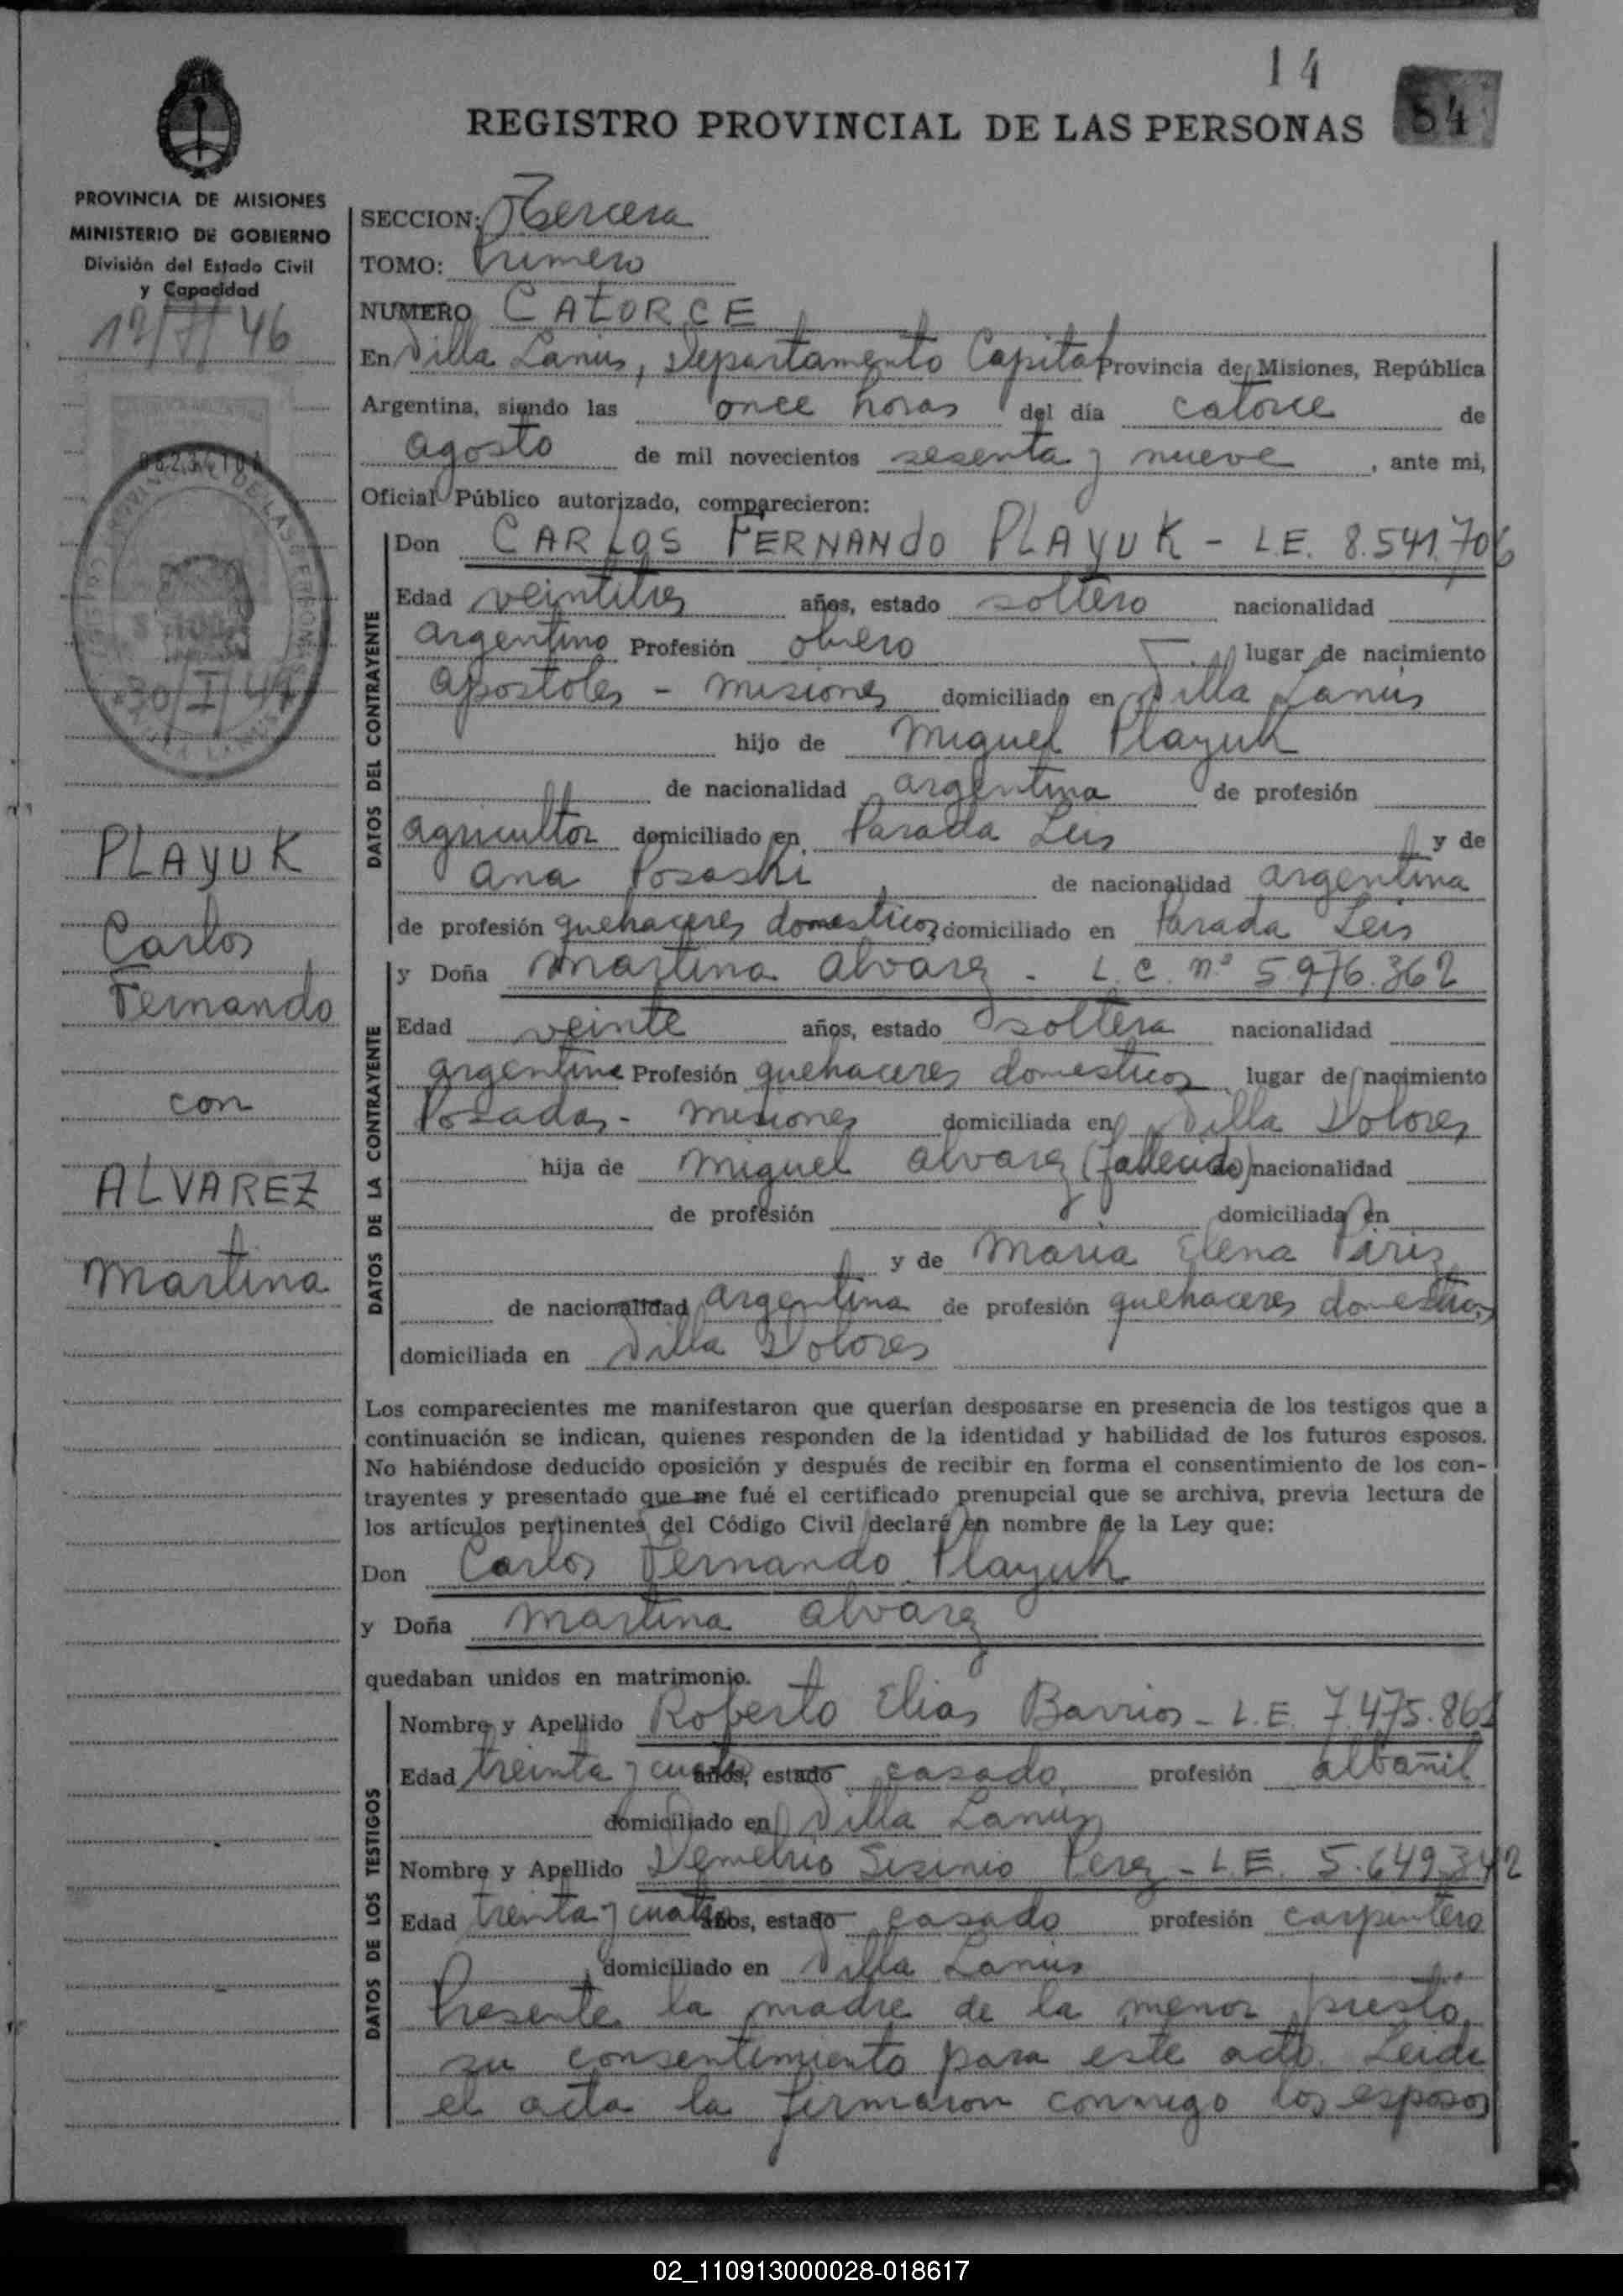 14
84
REGISTRO PROVINCIAL DE LAS PERSONAS
PROVINCIA DE MISIONES
MINISTERIO DE GOBIERNO
División del Estado Civil
y Capacidad
46
30/I/49
PLAYUK
Carlos
Fernando
con
ALVAREZ
Martina
SECCION: Tercera
TOMO: Primero
NUMERO CATORCE
En Villa Lanús, Departamento Capital Provincia de Misiones, República
Argentina, siendo las once horas del día catorce de
agosto de mil novecientos sesenta y nueve, ante mi,
Oficial Público autorizado, comparecieron:
DATOS DEL CONTRAYENTE
Don CARLOS FERNANDO PLAYUK - L.E. 8.541.706
Edad veintitres años, estado soltero nacionalidad
argentino Profesión obrero lugar de nacimiento
Apostoles - Misiones domiciliado en Villa Lanús
hijo de Miguel Playuk
de nacionalidad argentina de profesión
agricultor domiciliado en Parada Leis y de
Ana Posaski de nacionalidad argentina
de profesión quehaceres domesticos domiciliado en Parada Leis
DATOS DE LA CONTRAYENTE
y Doña Martina Alvarez - L.C. nº 5.976.362
Edad veinte años, estado soltera nacionalidad
argentina Profesión quehaceres domesticos lugar de nacimiento
Posadas - Misiones domiciliada en Villa Dolores
hija de Miguel Alvarez (fallecido) nacionalidad
de profesión domiciliada en
y de Maria Elena Piriz
de nacionalidad argentina de profesión quehaceres domesticos
domiciliada en Villa Dolores
Los comparecientes me manifestaron que querían desposarse en presencia de los testigos que a
continuación se indican, quienes responden de la identidad y habilidad de los futuros esposos.
No habiéndose deducido oposición y después de recibir en forma el consentimiento de los con-
trayentes y presentado que me fué el certificado prenupcial que se archiva, previa lectura de
los artículos pertinentes del Código Civil declaré en nombre de la Ley que:
Don Carlos Fernando Playuk
y Doña Martina Alvarez
quedaban unidos en matrimonio.
DATOS DE LOS TESTIGOS
Nombre y Apellido Roberto Elias Barrios - L.E. 7.475.861
Edad treinta y cuatro años, estado casado profesión albañil
domiciliado en Villa Lanús
Nombre y Apellido Demetrio Sisinio Perez - L.E. 5.649.342
Edad treinta y cuatro años, estado casado profesión carpintero
domiciliado en Villa Lanús
Presente la madre de la menor prestó
su consentimiento para este acto. Leida
el acta la firmaron conmigo los esposos
02_110913000028-018617